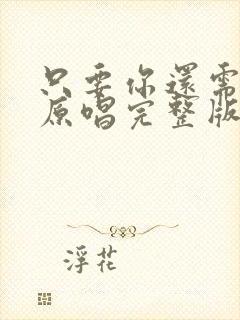 只要你還需
原唱完整版
浮花